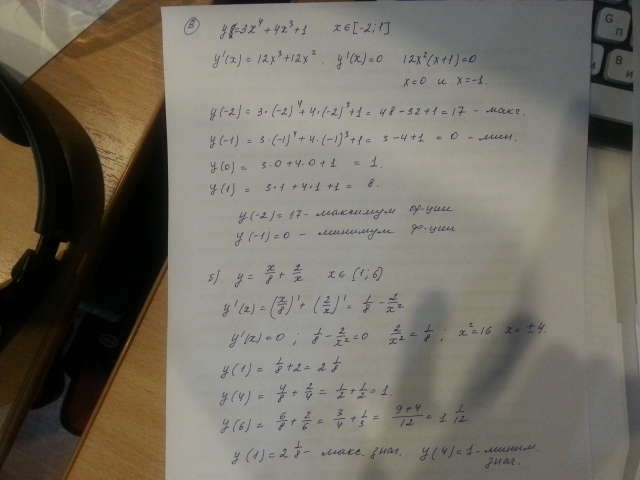 В) y=3x⁴+4x³+1 x∈[-2;1]
y'(x)=12x³+12x². y'(x)=0 12x²(x+1)=0
x=0 и x=-1.
y(-2)=3·(-2)⁴+4·(-2)³+1=48-32+1=17 - макс.
y(-1)=3·(-1)⁴+4·(-1)³+1=3-4+1=0 - мин.
y(0)=3·0+4·0+1=1.
y(1)=3·1+4·1+1=8.
y(-2)=17- максимум ф-ции
y(-1)=0 - минимум ф-ции
б) y=x/8+2/x x∈[1;6]
y'(x)=(x/8)'+(2/x)'=1/8-2/x²
y'(x)=0; 1/8-2/x²=0 2/x²=1/8; x²=16 x=±4.
y(1)=1/8+2=2 1/8
y(4)=4/8+2/4=1/2+1/2=1.
y(6)=6/8+2/6=3/4+1/3=(9+4)/12=1 1/12
y(1)=2 1/8- макс. знач. y(4)=1- миним.
знач.